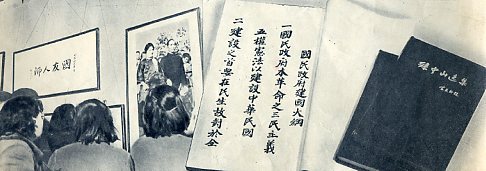 國友人師
國民政府建國大綱
一國民政府本革命之三民主義
五權憲法以建設中華民國
二建設之首要在民生故對於全
孫中山選集